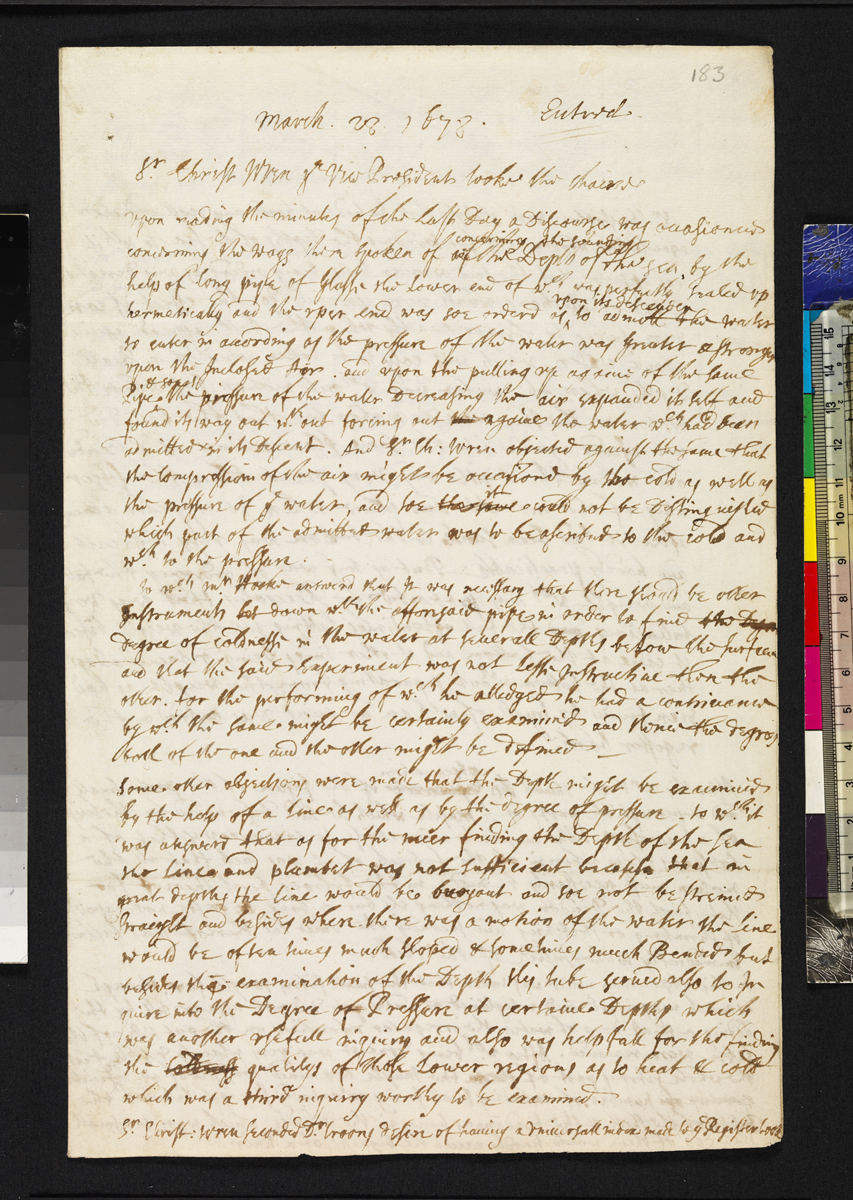 183
March. 28. 1678. Entred
Sr Christ Wren ye Vice President tooke the chaire
upon reading the minutes of the Last Day a Discourse was occasioned
concerning the ways then spoken of concerning the sounding of the Depth of the sea. by the
help of long pipe of Glasse the Lower end of wch was perfectly sealed up
hermetically and the uper end was soe orderd as upon its descending to admitt the water
to enter in according as the pressure of the water was greater & stronger
upon the Inclosed Ayr. and upon the pulling up againe of the same
Pipe the pressure of the water Decreasing the air expanded it self and
found its way out wthout forcing out the againe the water wch had been
admitted in its Descent. And Sr Ch: Wren objected against the same that
the compression of the air might be occasiond by the cold as well as
the pressure of ye water, and soe it could not be Distinguished
which part of the admitted water was to be ascribed to the cold and
wch to the pressure.
To wch mr Hooke answerd that It was necessary that there should be other
Instruments let down wth the afforesaid pipe in order to find the
degree of coldnesse in the water at severall Depths below the surface
and that the said Experiment was not Lesse Instructive then the
other. for the performing of wch he alledged he had a contrivance
by wch the same might be certainly examined and thence the degrees
both of the one and the other might be defined
Some other objections were made that the Depth might be examined
by the help of a line as well as by the degree of pressure. to wch it
was answerd that as for the meer finding the Depth of the sea
the line and plumbet was not sufficient because that in
great depths the line would be buoyant and soe not be streined
straight and besides where there was a motion of the water the line
would be often times much sloped & sometimes much Bended but
besides this examination of the Depth this tube served also to In
quire into the Degree of Pressure at certaine Depths which
was another usefull inquiry and also was helpfull for the finding
the coldness qualitys of those Lower regions as to heat & cold
which was a third inquiry worthy to be examined.
Sr Christ: Wren seconded Dr Croons desire of having a universall index made to ye Register book